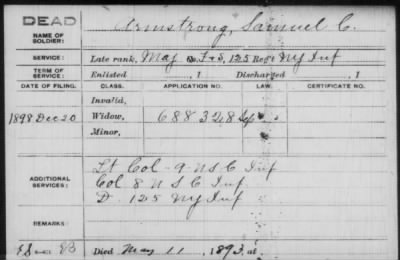 DEAD
NAME OF SOLDIER: Armstrong, Samuel C.
SERVICE: Late rank, Maj F+S, 125 Reg't NY Inf
TERM OF SERVICE: Enlisted , 1 Discharged , 1
DATE OF FILING. CLASS. APPLICATION NO. LAW. CERTIFICATE NO.
Invalid,
1898 Dec 20 Widow, 688328
Minor,
ADDITIONAL SERVICES: Lt Col - 9 U S C Inf
Col 8 U S C Inf
D 125 NY Inf
REMARKS:
Died May 11, 1893, at